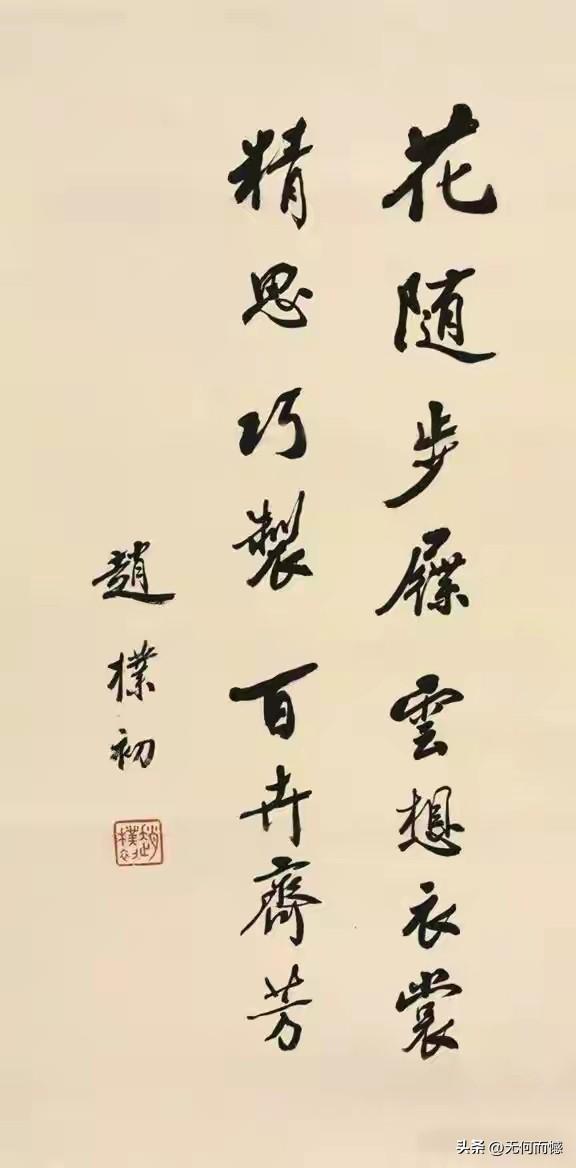 花随步屧雲想衣裳
精思巧製百卉齊芳
趙樸初
趙樸初
头条 @无何而憾